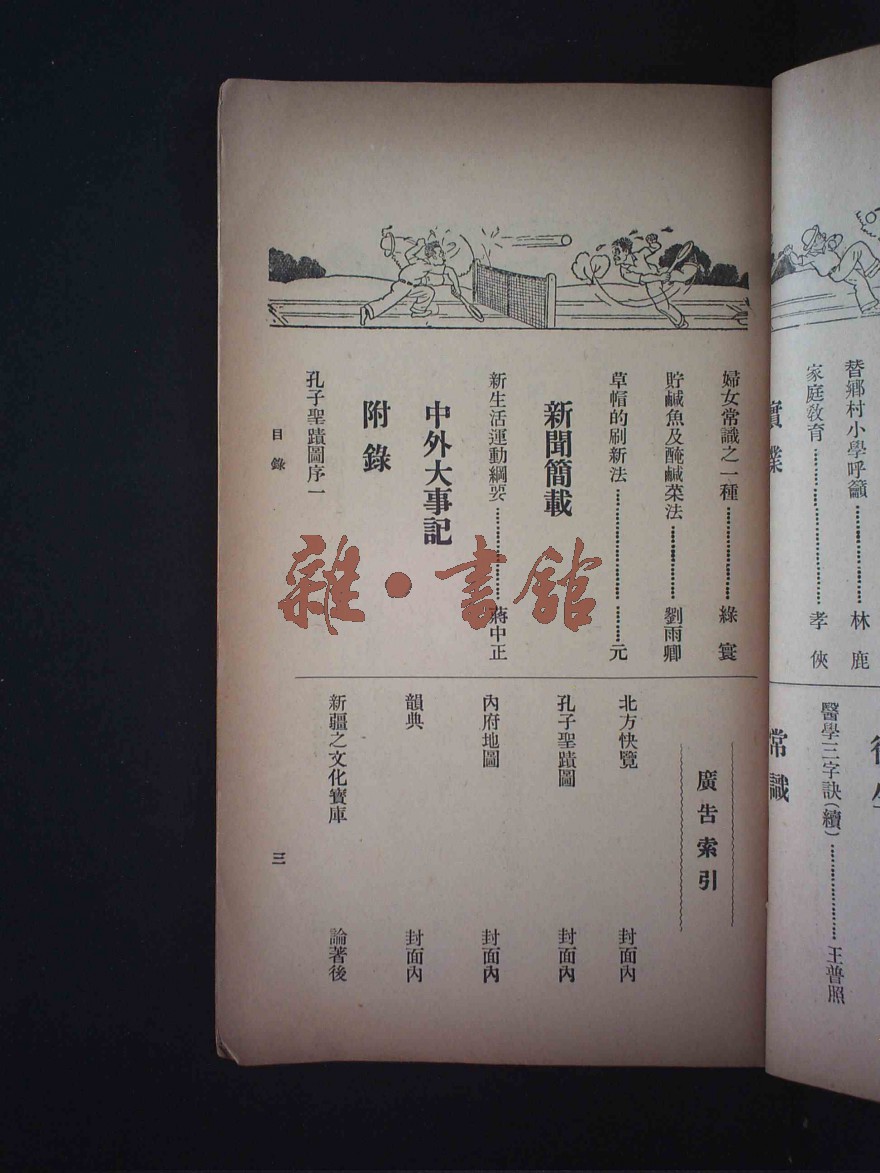 替鄉村小學呼籲……………林 鹿
家庭教育……………………孝 俠
醫學三字訣(續)……………王普照
常識
婦女常識之一種……………綠 寰
貯鹹魚及醃鹹菜法…………劉雨卿
草帽的刷新法………………元
新聞簡載
新生活運動綱要……………蔣中正
中外大事記
附錄
孔子聖蹟圖序一
廣告索引
北方快覽 封面內
孔子聖蹟圖 封面內
內府地圖 封面內
韻典 封面內
新疆之文化寶庫 論著後
目錄
三
雜·書館